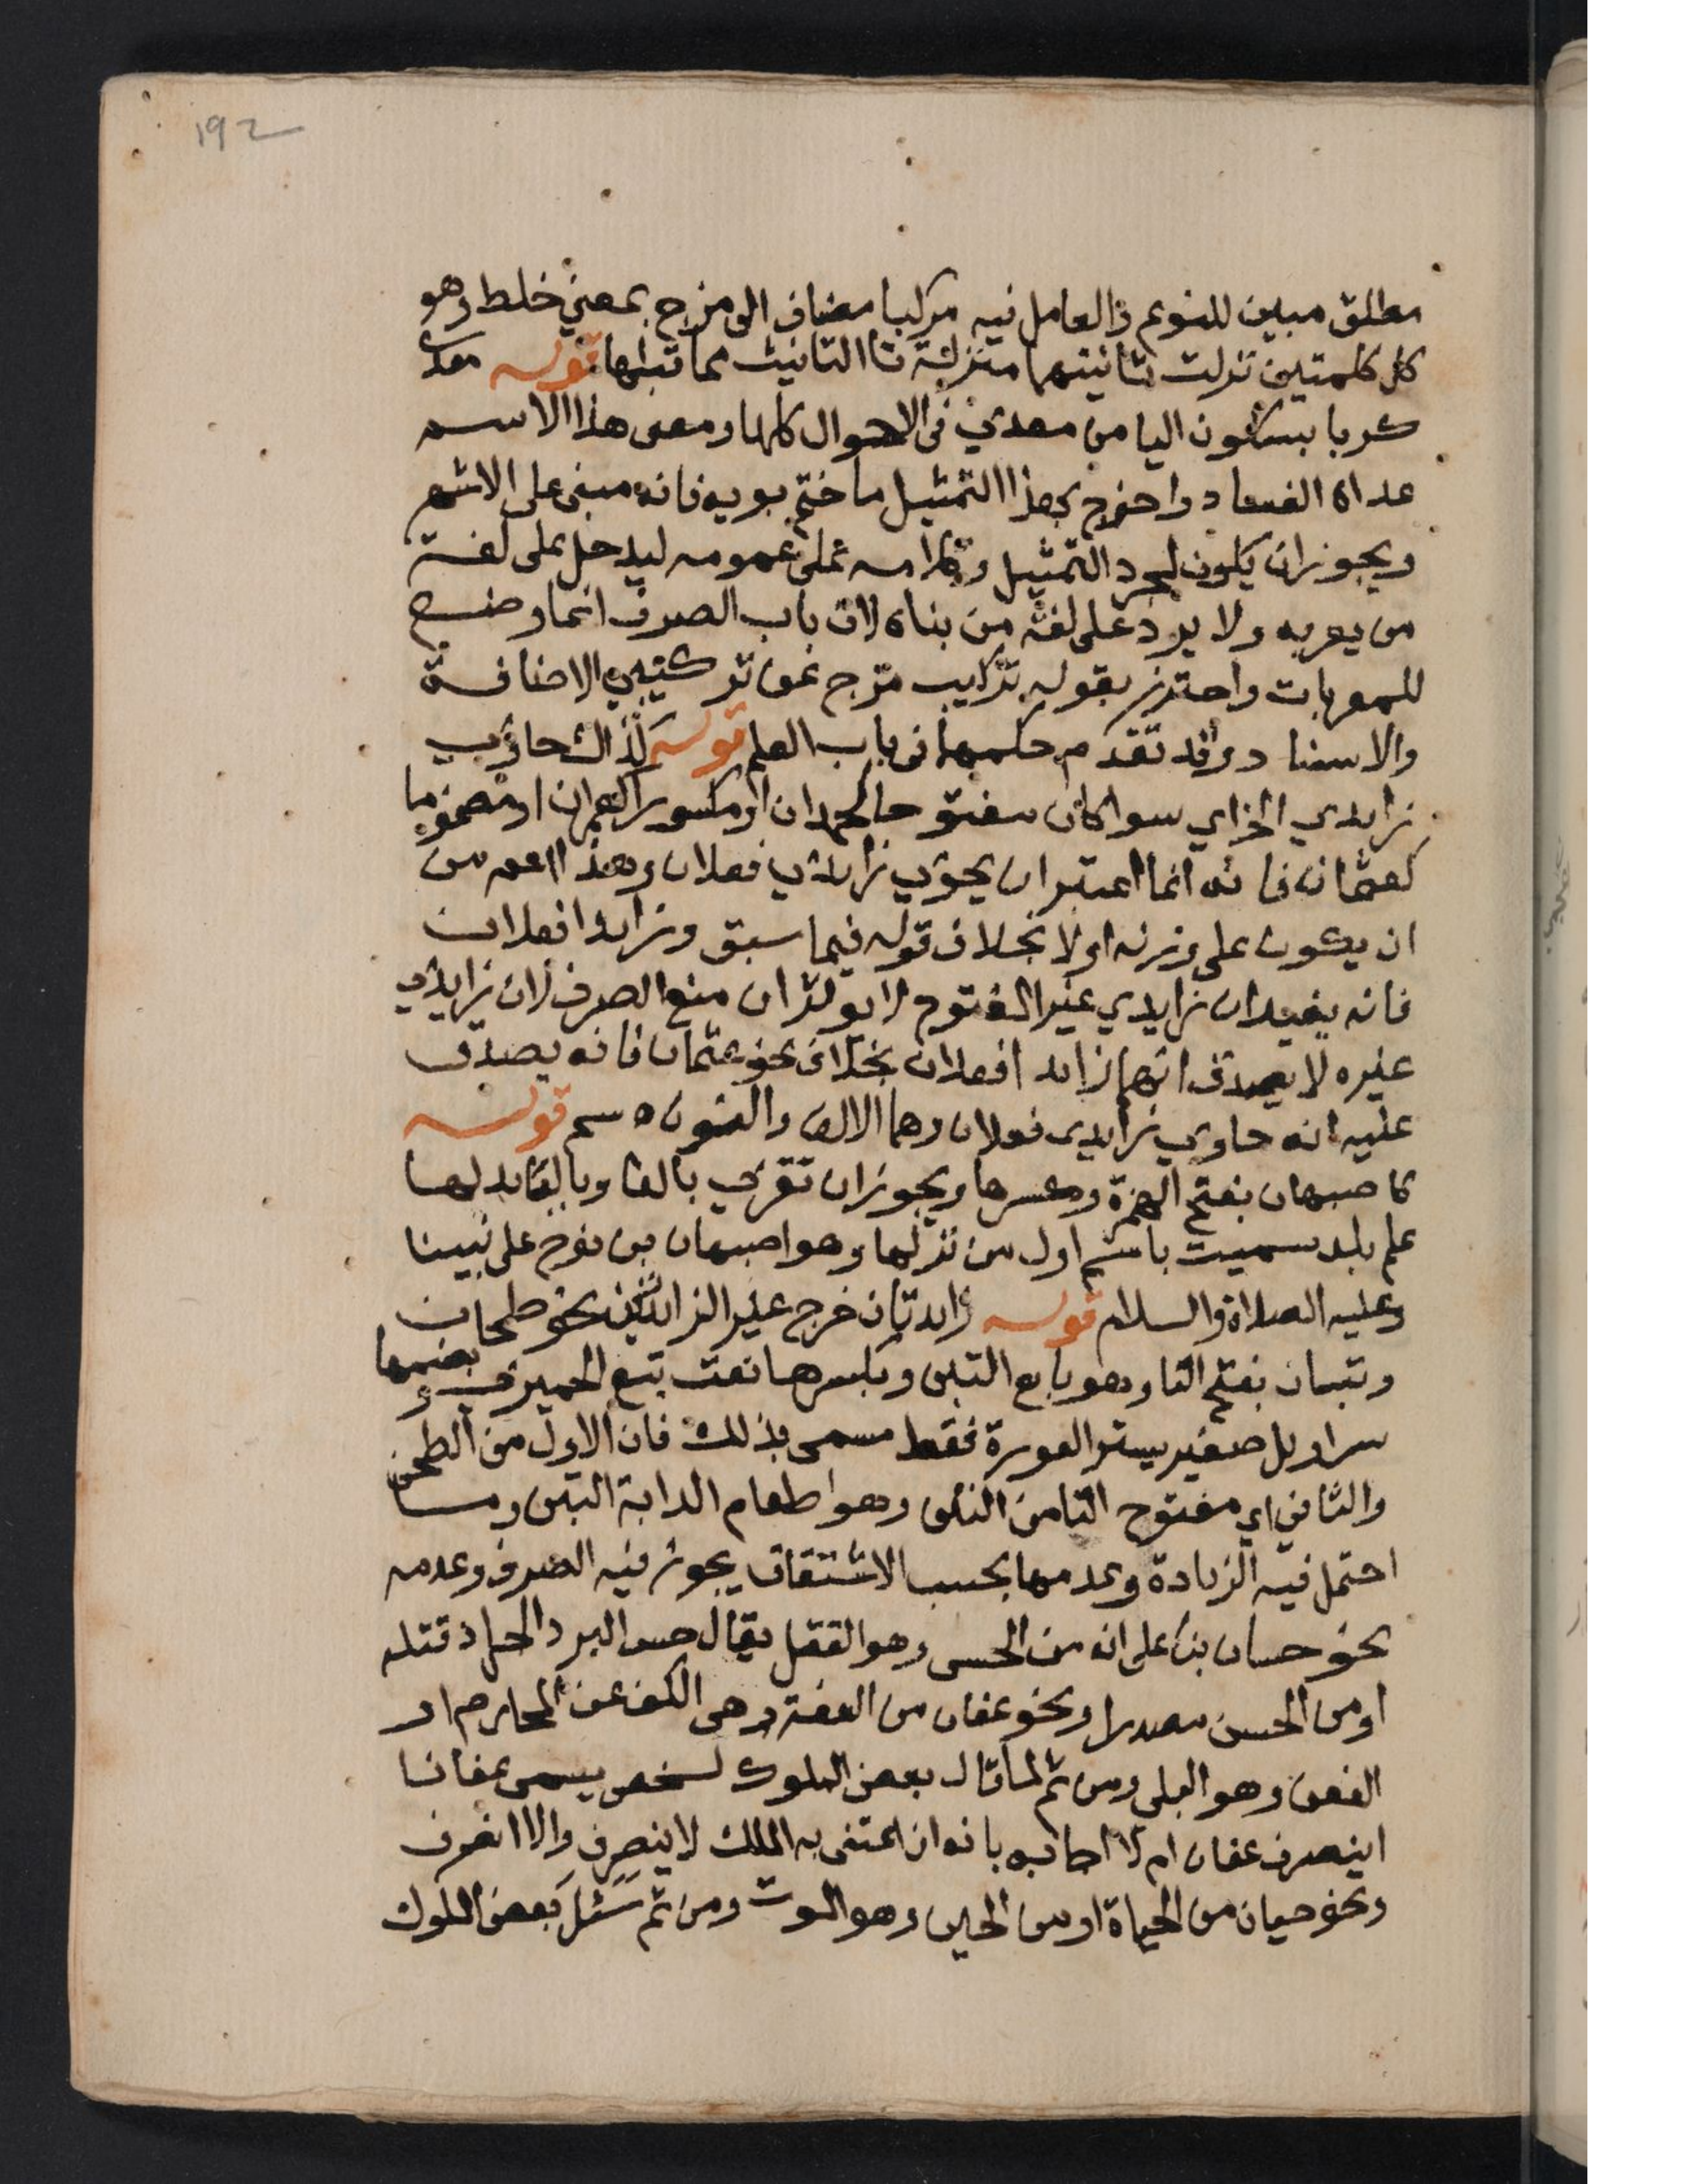 192
مطلق مبين للنوع والعامل فيه مركبا مضاف الى مزج بمعني خلط وهو
كل كلمتين نزلت ثانيتهما منزلة تا التانيث مما قبلها قوله معدي
كربا بسكون اليا من معدي في الاحوال كلها ومعنى هذا الاسم
عداه الفساد واخرج بهذا التمثيل ما ختم بويه فانه مبنى على الاشهر
ويجوز ان يكون لمجرد التمثيل وكلامه على عمومه ليدخل على لغة
من يعربه ولا يرد على لغة من بناه لان باب الصرف انما وضع
للمعربات واحترز بقوله تركيب مزج عن تركيبي الاضافة
والاسناد وقد تقدم حكمهما في باب العلم قوله كذاك حاوي
زايدي الخ اي سوا كان مفتوحا كحمدان او مكسورا كعمران او مضموما
كعثمان فانه انما اعتبر ان يحوي زايدي فعلان وهذا اعم من
ان يكون على وزنه اولا بخلاف قوله فيما سبق وزايدا فعلان
فانه يفيد ان زايدي غير المفتوح لا يوثران منع الصرف لان زايدي
غيره لا يصدق انهما زايدا فعلان بخلاف نحو عثمان فانه يصدق
عليه انه حاوي زايدى فعلان وهما الالف والنون ه سم قوله
كاصبهان بفتح الهمزة وكسرها ويجوز ان تقري بالفا وبالبا بدلها
علم بلد سميت باسم اول من نزلها وهو اصبهان بن نوح على نبينا
وعليه الصلاة والسلام قوله زايدتان خرج غير الزايدتين نحو طحان
وتبان بفتح التا وهو بايع التبن وبكسرها نعت تبع الحميري وبضمها
سراويل صغير يستر العورة فقط مسمى بذلك فان الاول من الطحن
والثاني اي مفتوح التا من التبن وهو اطعام الدابة التبن وما
احتمل فيه الزيادة وعدمها بحسب الاشتقاق يجوز فيه الصرف وعدمه
نحو حسان بنا على انه من الحس وهو القتل يقال حس البرد الجراد قتله
او من الحسن مصدرا ونحو عفان من العفة وهي الكف عن المحارم او
العفن وهو البلى ومن ثم لما قال بعض الملوك لشخص يسمى عفانا
اينصرف عفان ام لا اجابه بانه ان اعتنى به الملك لا ينصرف والا انصرف
ونحو حيان من الحياة او من الحين وهو الموت ومن ثم سئل بعض الملوك